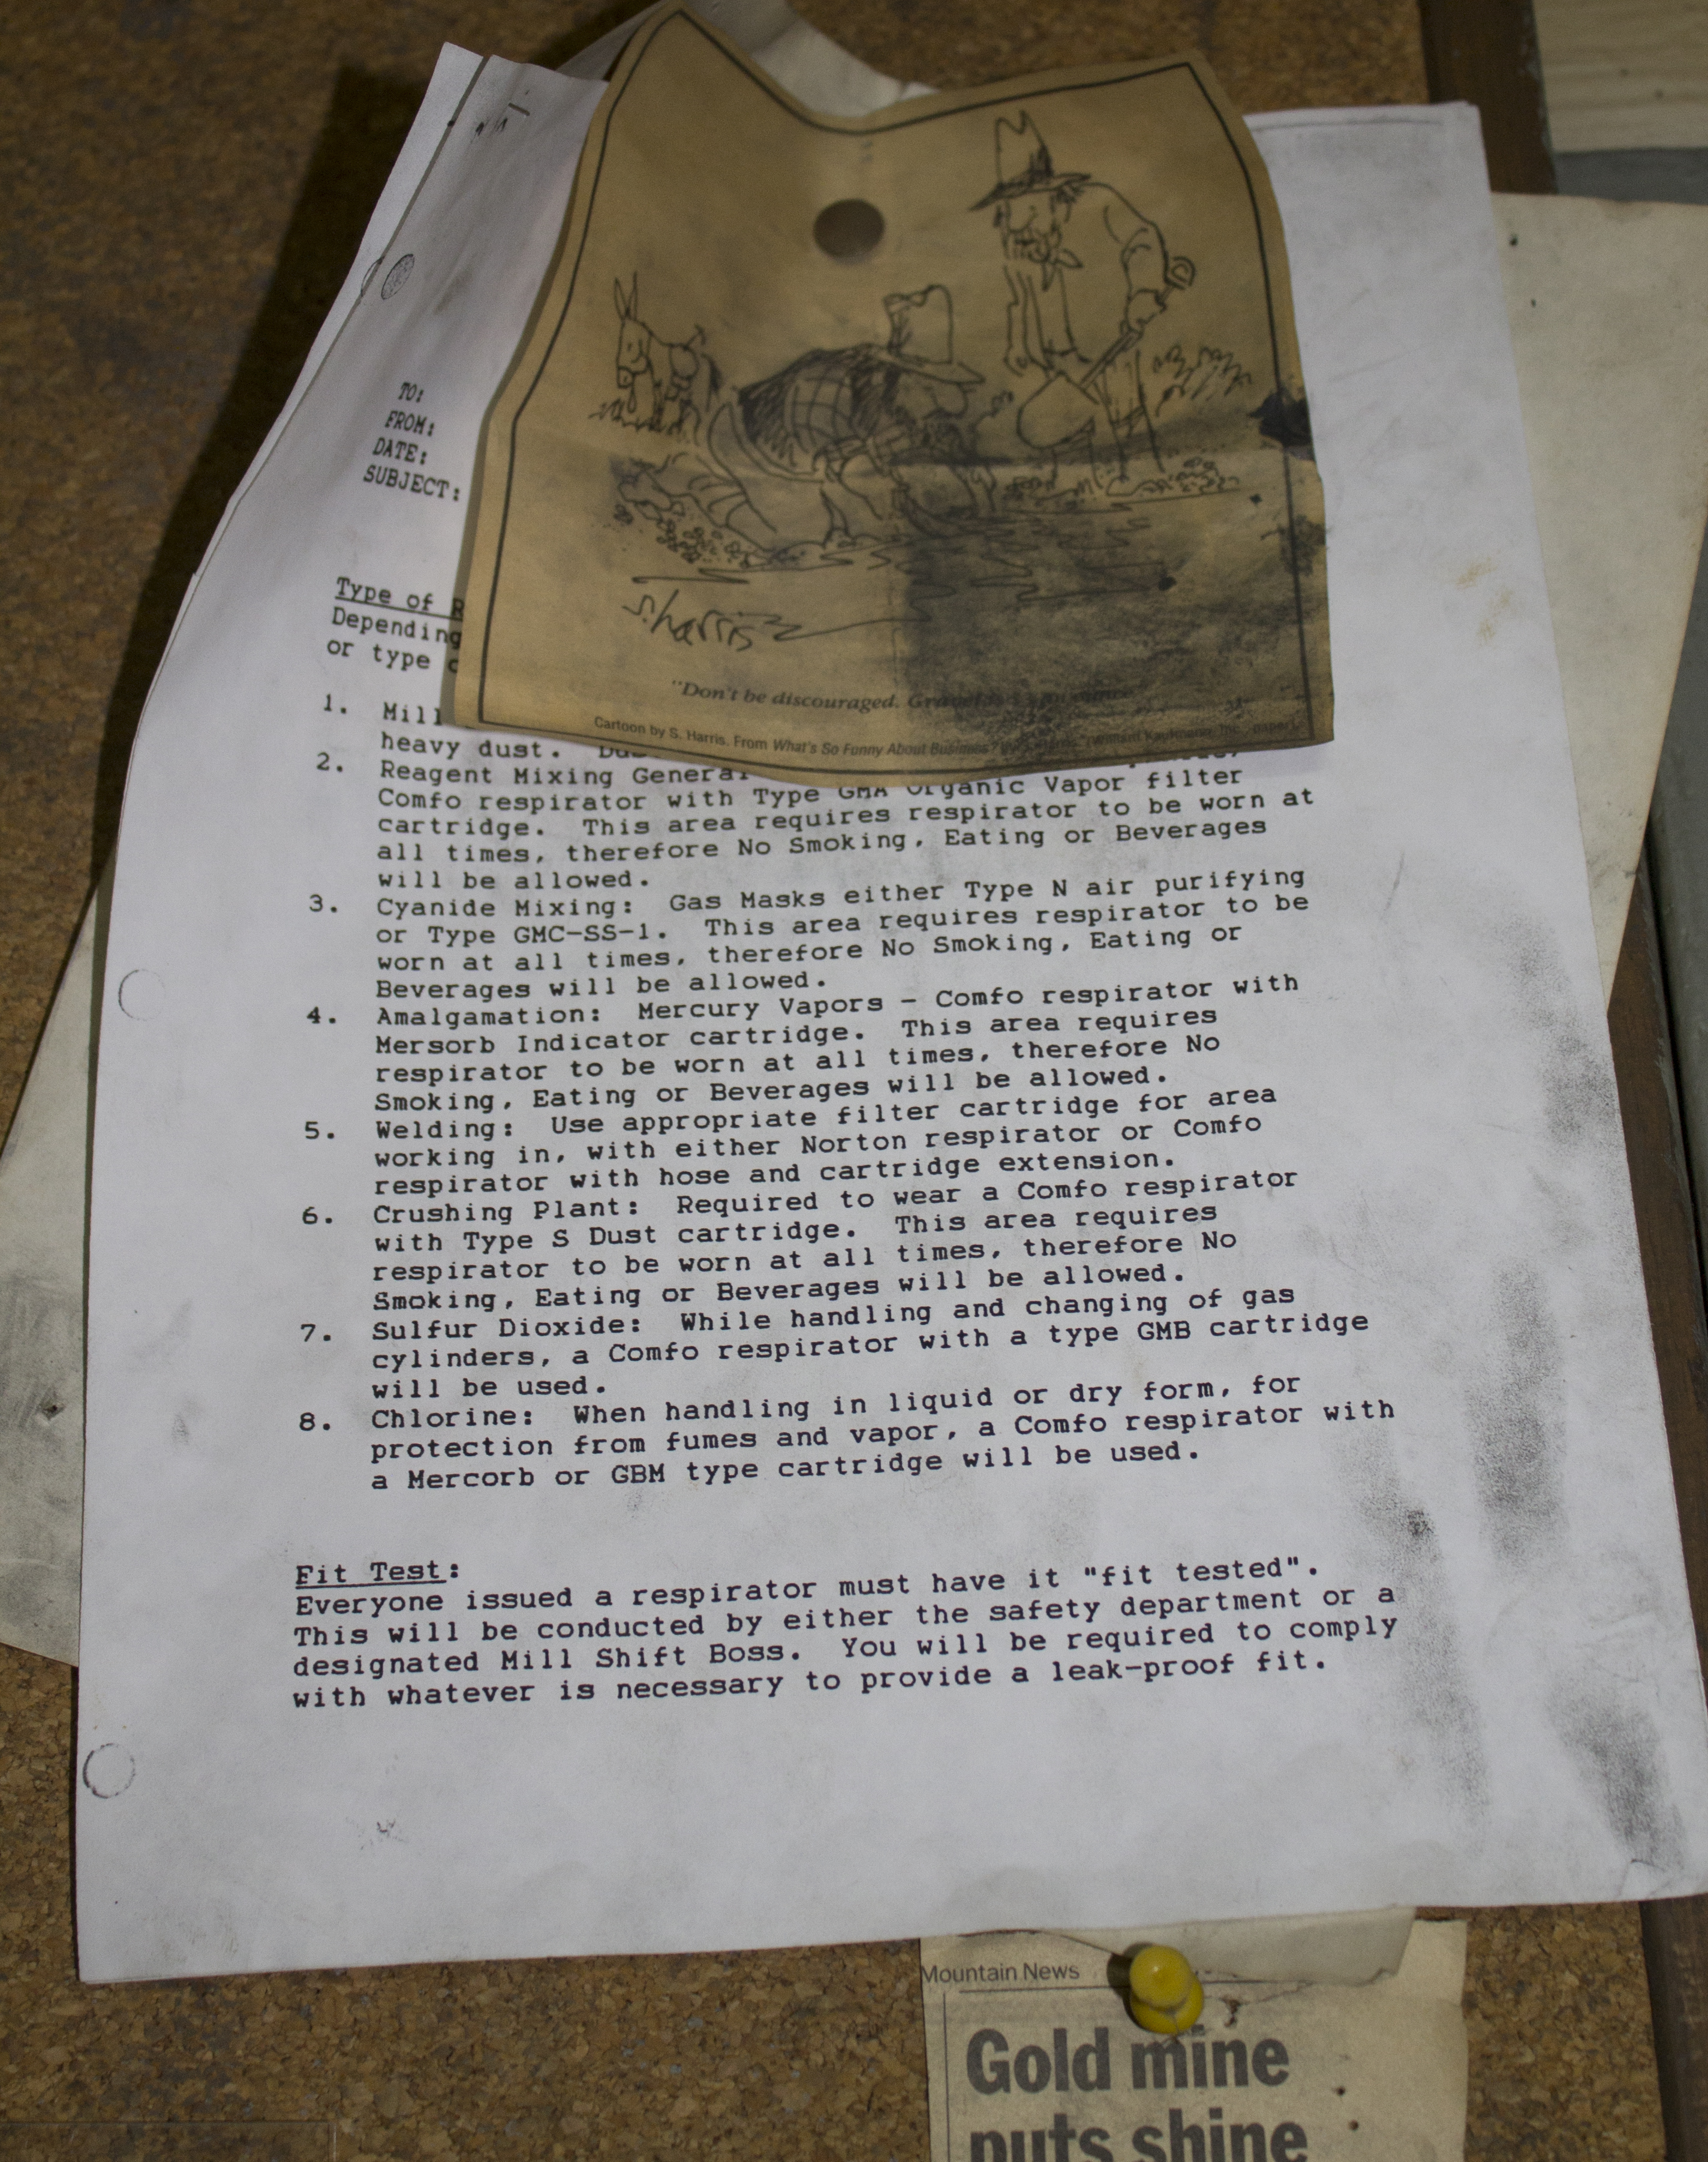 TO:
FROM:
DATE:
SUBJECT:
Type of
Depending
or type
S. Harris
"Don't be discouraged.
Cartoon by S. Harris. From What's So Funny About Business?
1. Mill
heavy dust.
2. Reagent Mixing General
Comfo respirator with Type GMA Organic Vapor filter
cartridge. This area requires respirator to be worn at
all times, therefore No Smoking, Eating or Beverages
will be allowed.
3. Cyanide Mixing: Gas Masks either Type N air purifying
or Type GMC-SS-1. This area requires respirator to be
worn at all times, therefore No Smoking, Eating or
Beverages will be allowed.
4. Amalgamation: Mercury Vapors - Comfo respirator with
Mersorb Indicator cartridge. This area requires
respirator to be worn at all times, therefore No
Smoking, Eating or Beverages will be allowed.
5. Welding: Use appropriate filter cartridge for area
working in, with either Norton respirator or Comfo
respirator with hose and cartridge extension.
6. Crushing Plant: Required to wear a Comfo respirator
with Type S Dust cartridge. This area requires
respirator to be worn at all times, therefore No
Smoking, Eating or Beverages will be allowed.
7. Sulfur Dioxide: While handling and changing of gas
cylinders, a Comfo respirator with a type GMB cartridge
will be used.
8. Chlorine: When handling in liquid or dry form, for
protection from fumes and vapor, a Comfo respirator with
a Mercorb or GBM type cartridge will be used.
Fit Test:
Everyone issued a respirator must have it "fit tested".
This will be conducted by either the safety department or a
designated Mill Shift Boss. You will be required to comply
with whatever is necessary to provide a leak-proof fit.
Mountain News
Gold mine
puts shine